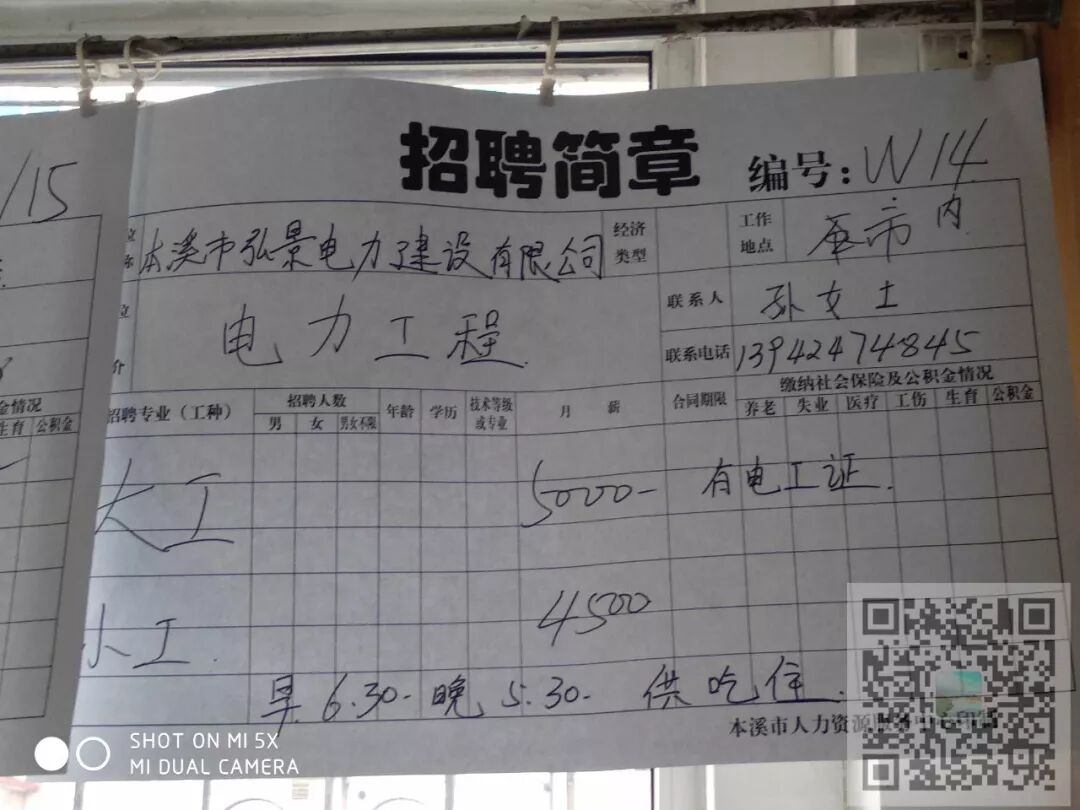 招聘简章
编号：W14
/15
位 称 本溪市弘景电力建设有限公司
经济类型
工作地点
市内
位 介 电力工程
联系人 孙女士
联系电话 13942474845
招聘专业（工种）
招聘人数
男 女 男女不限
年龄
学历
技术等级或专业
月 薪
合同期限
缴纳社会保险及公积金情况
养老 失业 医疗 工伤 生育 公积金
金情况
生育 公积金
大工 5000- 有电工证.
小工. 4500
早6.30-晚5.30- 供吃住.
本溪市人力资源
SHOT ON MI 5X
MI DUAL CAMERA